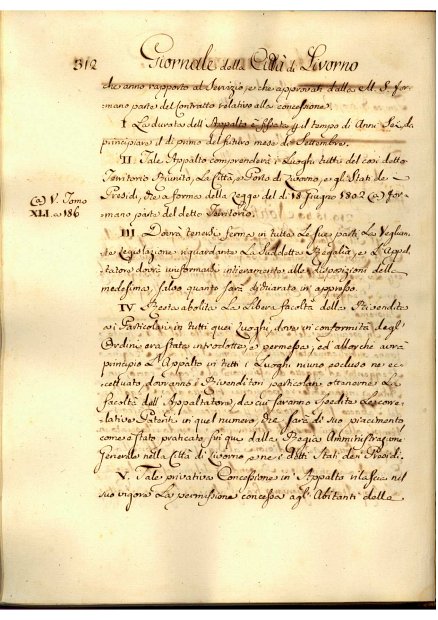 312 Giornale della Città di Livorno
che anno rapporto al Servizio, e che approvati dalla M. S. for-
mano parte del Contratto relativo alla concessione.
I. La durata dell'Appalto è fissata per il tempo di Anni Sei da
principiare il dì primo del futuro mese di Settembre.
II. Tale Appalto comprenderà i Luoghi tutti del così detto
Territorio Riunito, La Città, e Porto di Livorno, e gli Stati de
Presidj, che a forma della Legge del dì 18 Giugno 1802 (a) for-
mano parte del detto Territorio.
(a) V. Tomo
XLI. a 186
III Dovrà tenersi ferma in tutte Le sue parti La Veglian-
te Legislazione riguardante La Suddetta Regalìa, e L'Appal-
tatore dovrà uniformarsi intieramente alle disposizioni della
medesima, salvo quanto sarà dichiarato in appresso.
IV Resta abolita La Libera facoltà della Rivendita
ai Particolari in tutti quei Luoghi, dove in conformità degl'
Ordini era stata introdotta, e permessa, ed allorchè avrà
principio L'Appalto in tutti i Luoghi niuno escluso ne ec-
cettuato, dovranno i Rivenditori particolari ottenerne La
facoltà dell'Appaltatore, da cui saranno Spedite Le corre-
lative Patenti in quel numero che sarà di suo piacimento
come è stato praticato fin qui dalla Regia Amministrazione
Generale nella Città di Livorno, e ne i detti Stati dei Presidj.
V. Tale privativa Concessione in Appalto rilascia nel
suo vigore La permissione concessa agli Abitanti della